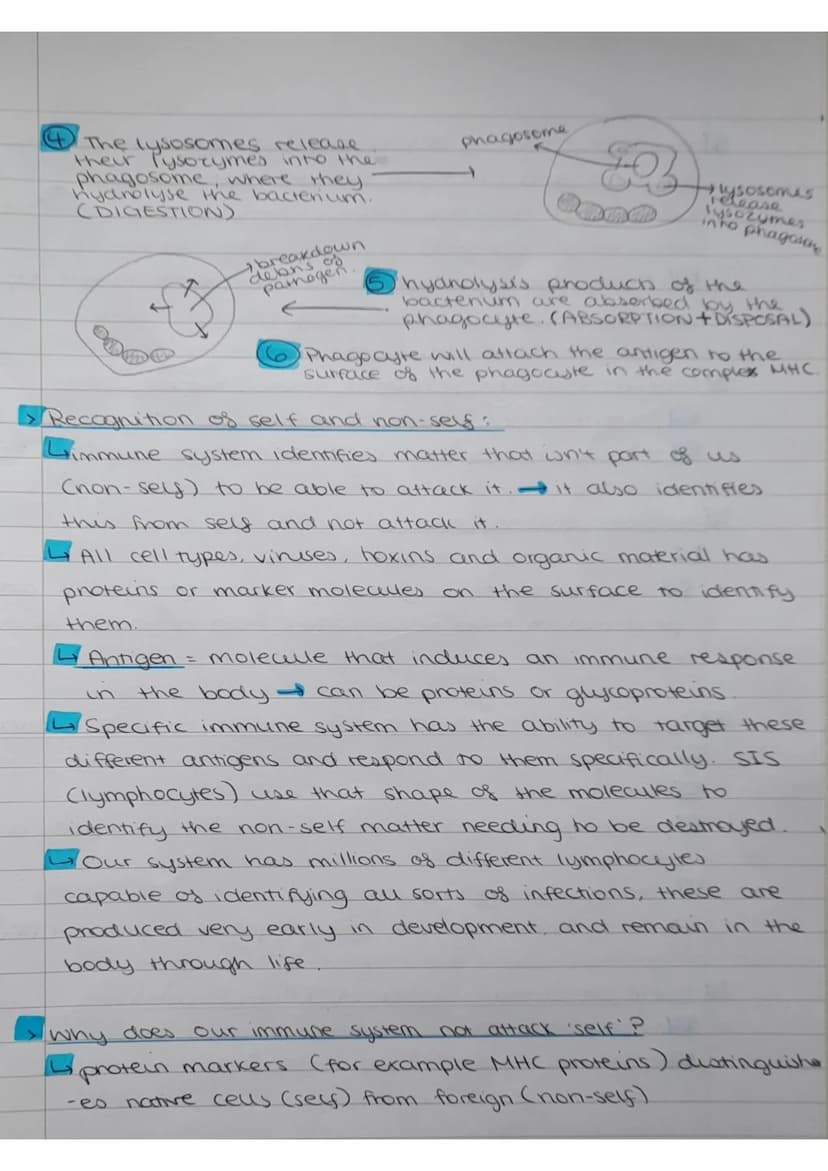 ④ The lysosomes release
their lysozymes into the
phagosome, where they
hydrolyse the bacterium.
(DIGESTION)
phagosome
lysosomes
release
lysozymes
into phagosome
breakdown
debris of
pathogen.
⑤ hydrolysis products of the
bacterium are absorbed by the
phagocyte. (ABSORPTION + DISPOSAL)
⑥ Phagocyte will attach the antigen to the
surface of the phagocyte in the complex MHC.
> Recognition of self and non-self:
↳ immune system identifies matter that isn't part of us
(non-self) to be able to attack it. → it also identifies
this from self and not attack it.
↳ All cell types, viruses, toxins and organic material has
proteins or marker molecules on the surface to identify
them.
↳ Antigen = molecule that induces an immune response
in the body → can be proteins or glycoproteins.
↳ Specific immune system has the ability to target these
different antigens and respond to them specifically. SIS
(lymphocytes) use that shape of the molecules to
identify the non-self matter needing to be destroyed.
↳ Our system has millions of different lymphocytes
capable of identifying all sorts of infections, these are
produced very early in development, and remain in the
body through life.
> Why does our immune system not attack 'self'?
↳ protein markers (for example MHC proteins) distinguish
-es native cells (self) from foreign (non-self)